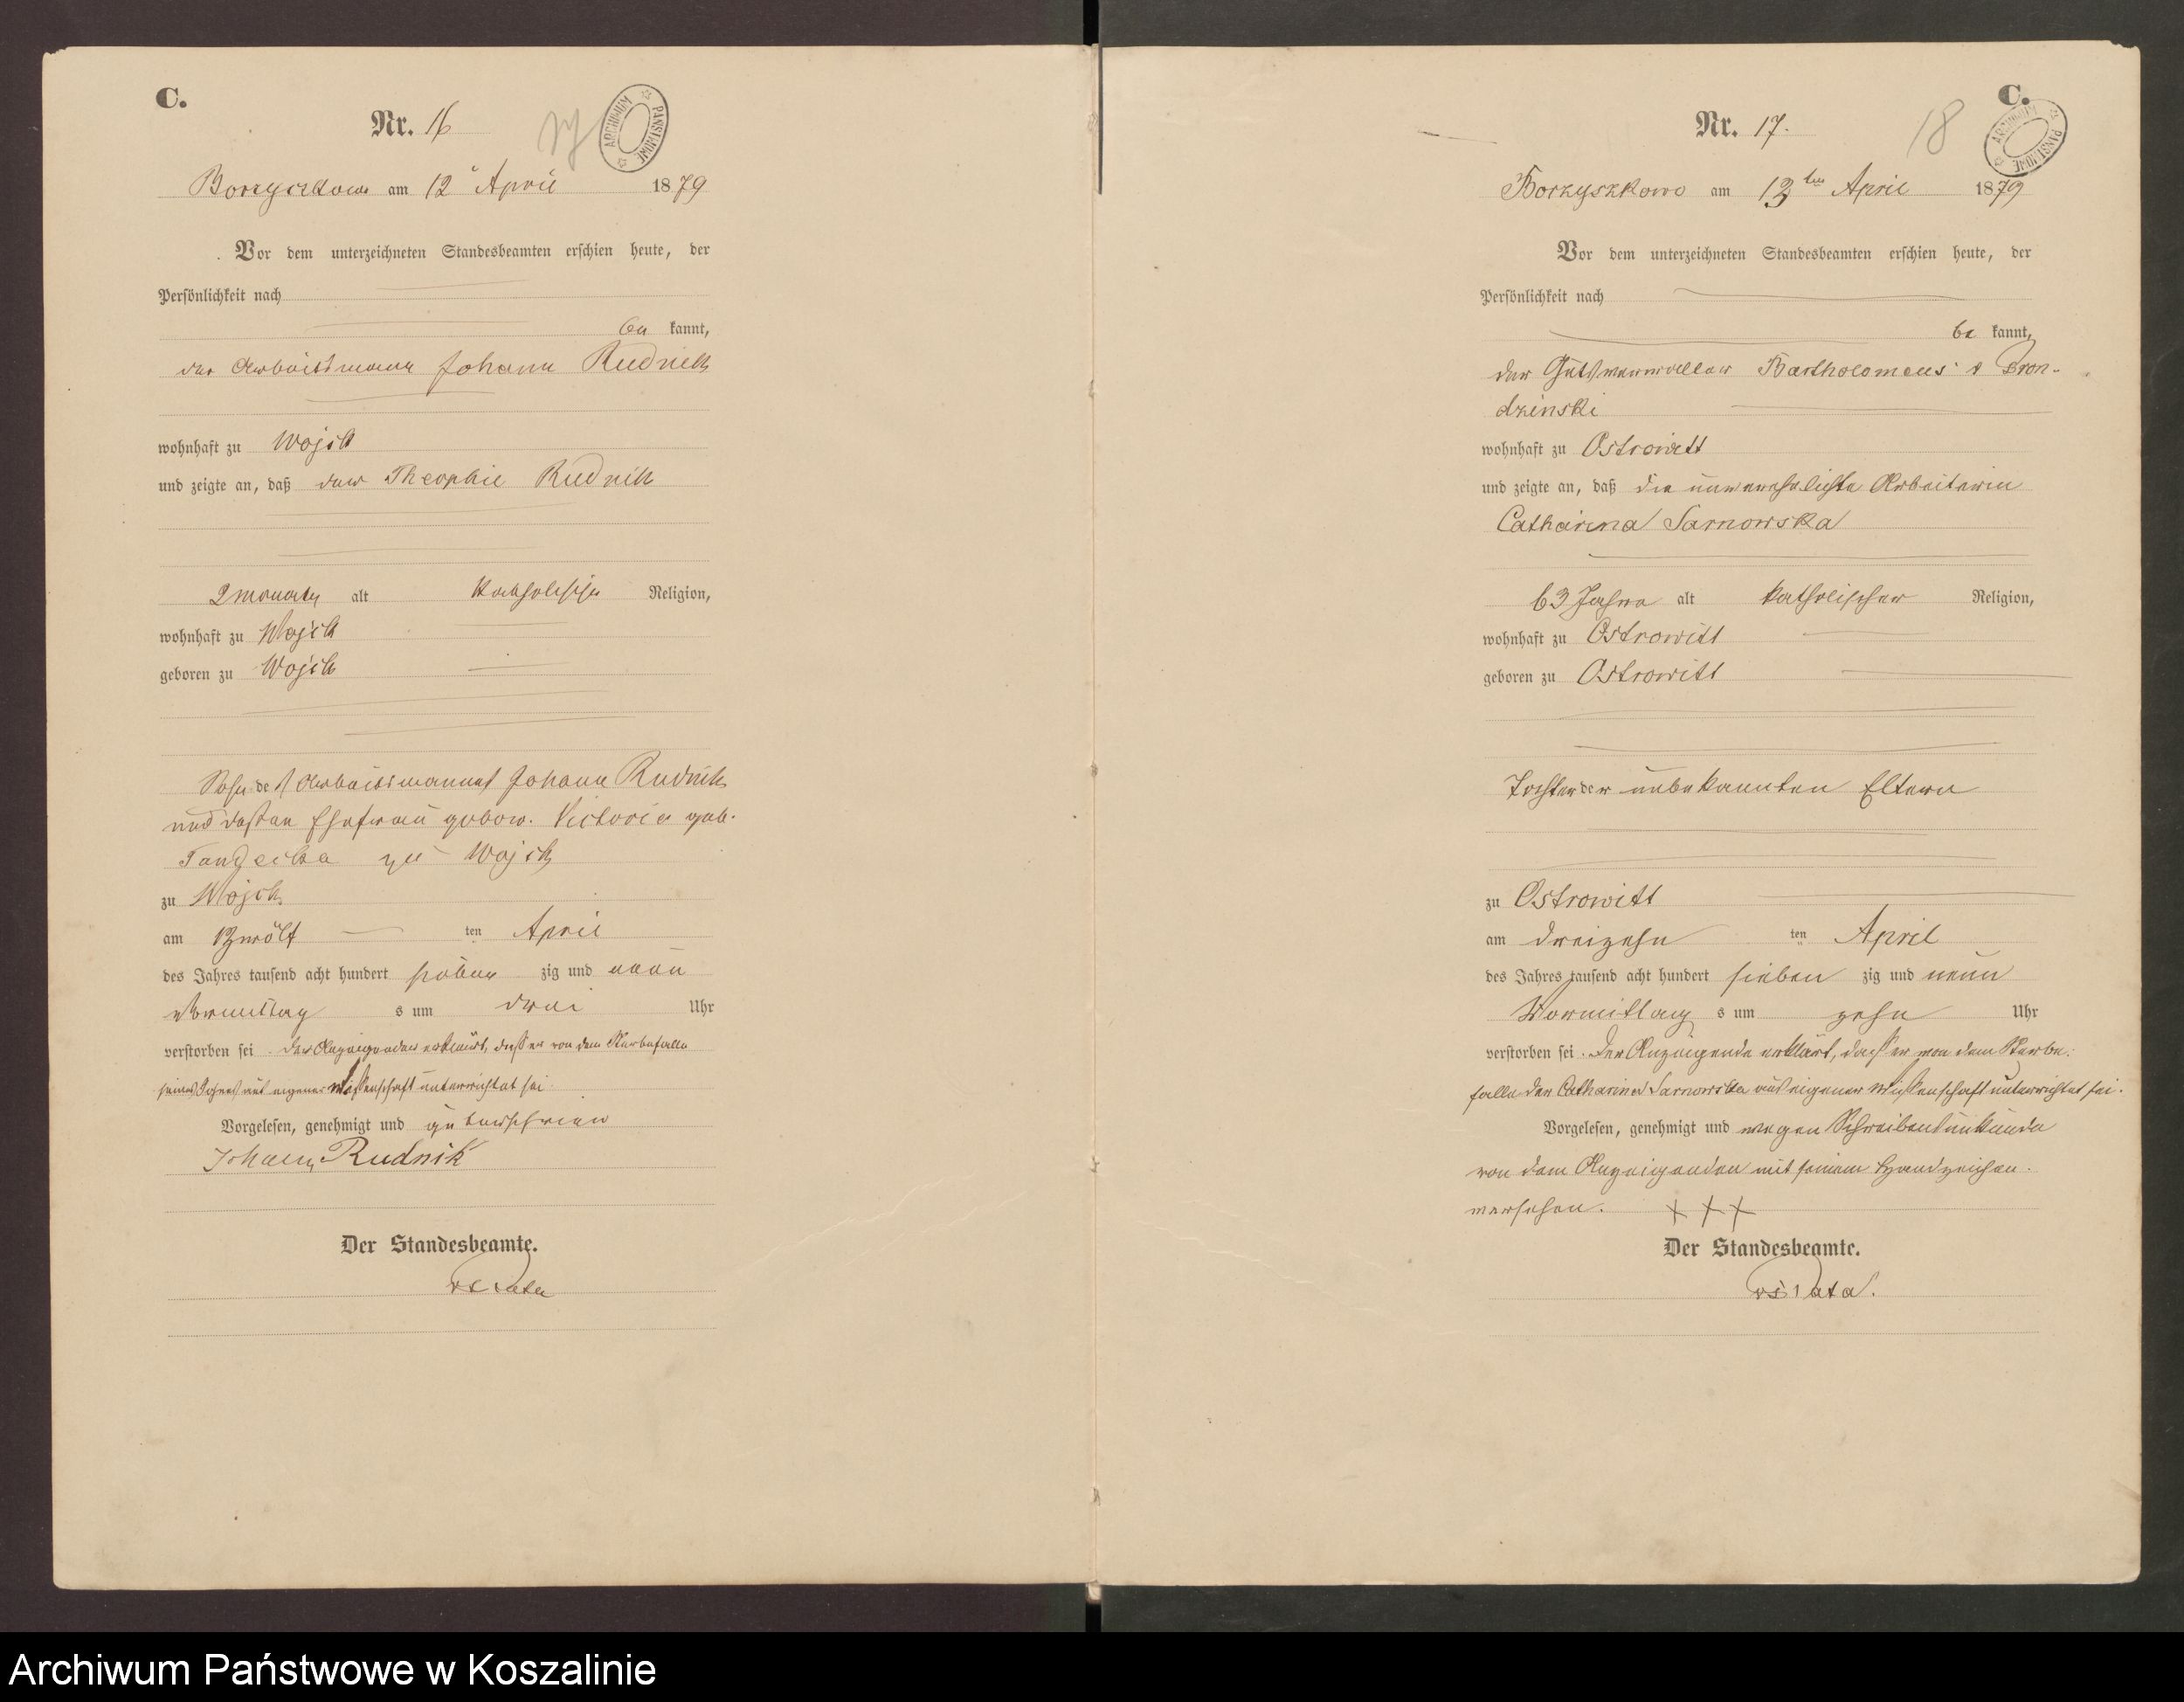 C.
Nr. 16
ARCHIWUM PAŃSTWOWE
Borzyszkowo am 12 April 1879
Vor dem unterzeichneten Standesbeamten erschien heute, der
Persönlichkeit nach
be kannt,
der Arbeitsmann Johann Rudnik
wohnhaft zu Wojsk
und zeigte an, daß der Theophil Rudnik
2 Monate alt katholischer Religion,
wohnhaft zu Wojsk
geboren zu Wojsk
Sohn des Arbeitsmannes Johann Rudnik
und dessen Ehefrau gebor. Victoria geb.
zu Wojsk
zu Wojsk
am zwölf ten April
des Jahres tausend acht hundert sieben zig und neun
Vormittag s um drei Uhr
verstorben sei. Der Anzeigende erklärt, daß er von dem Sterbefalle
seines Sohnes aus eigener Wissenschaft unterrichtet sei.
Vorgelesen, genehmigt und
Johann Rudnik
Der Standesbeamte.
C.
Nr. 17.
18
ARCHIWUM PAŃSTWOWE
Borzyszkowo am 13ten April 1879
Vor dem unterzeichneten Standesbeamten erschien heute, der
Persönlichkeit nach
be kannt,
der Gutsverwalter Bartholomeus v Bron-
dzinski
wohnhaft zu Ostrowitt
und zeigte an, daß die unverehelichte Arbeiterin
Catharina Sarnowska
63 Jahre alt katholischer Religion,
wohnhaft zu Ostrowitt
geboren zu Ostrowitt
Tochter der unbekannten Eltern
zu Ostrowitt
am dreizehn ten April
des Jahres tausend acht hundert sieben zig und neun
Vormittag s um zehn Uhr
verstorben sei. Der Anzeigende erklärt, daß er von dem Sterbe-
falle der Catharina Sarnowska aus eigener Wissenschaft unterrichtet sei.
Vorgelesen, genehmigt und wegen Schreibensunkunde
von dem Anzeigenden mit seinem Handzeichen
versehen. + + +
Der Standesbeamte.
Archiwum Państwowe w Koszalinie